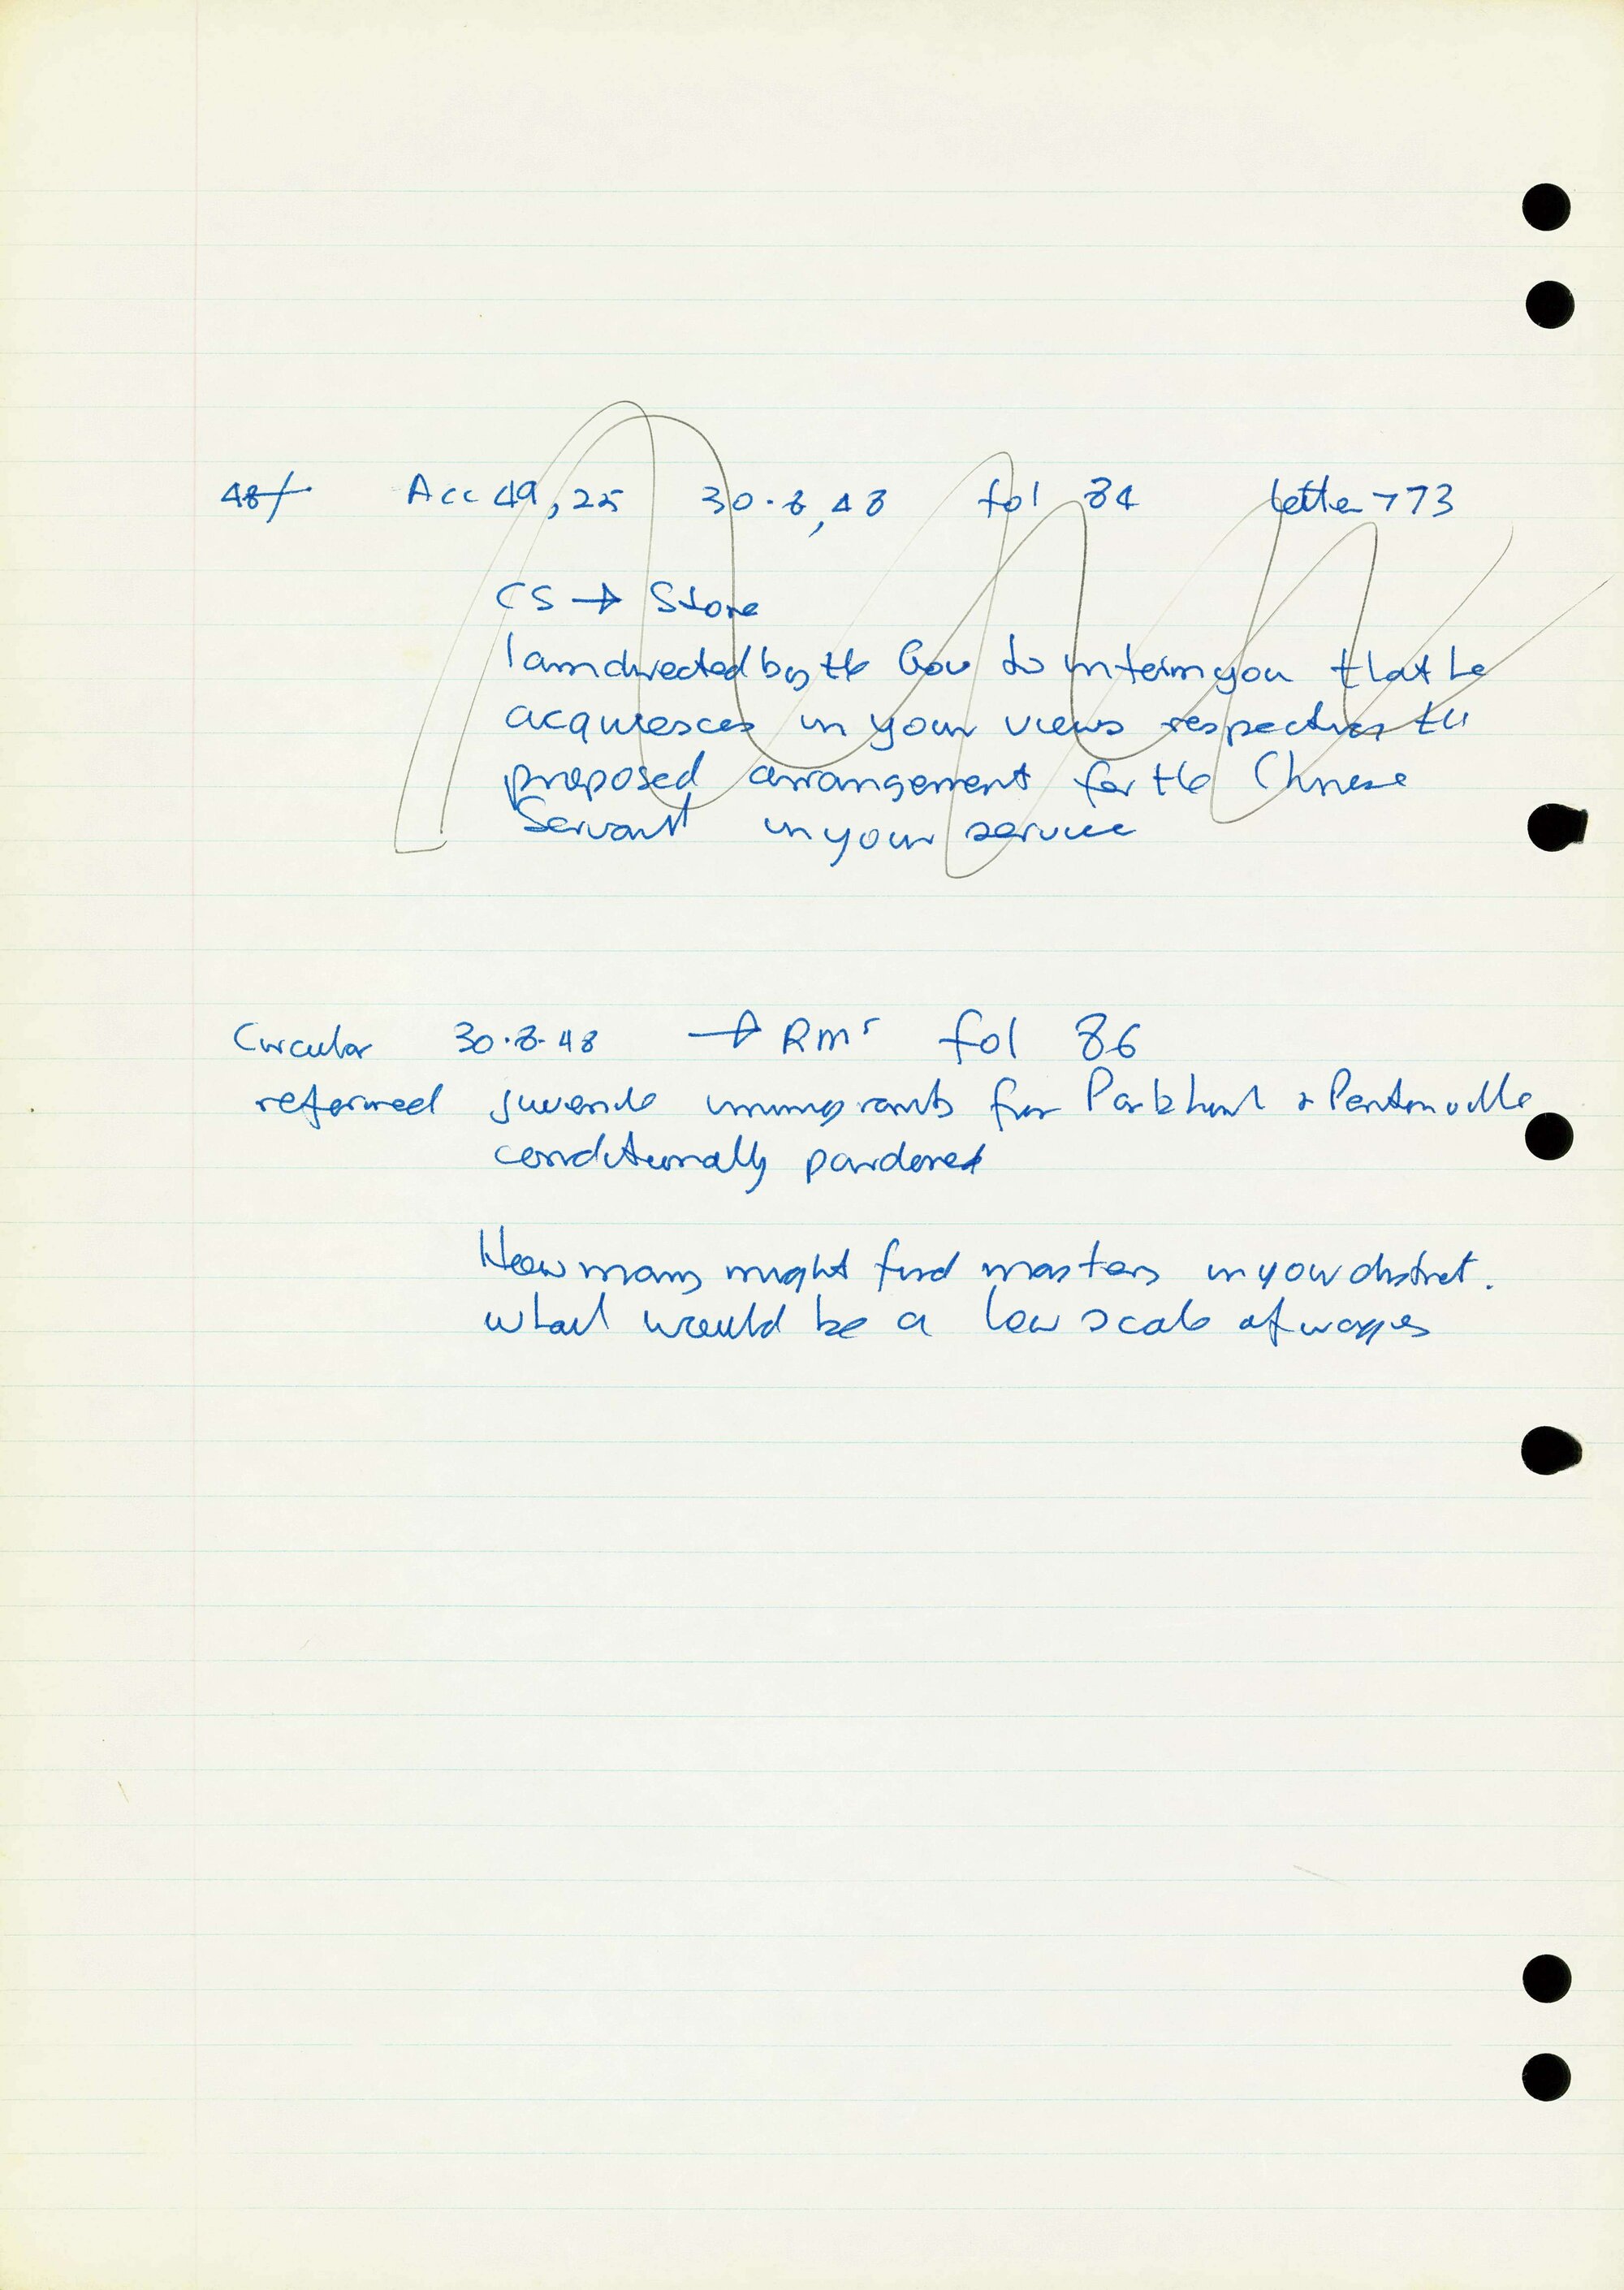 48/ Acc 49, 25 30.8,48 fol 84 letter 773
CS → Stone
I am directed by the Gov to inform you that he
acquiesces in your views respecting the
proposed arrangement for the Chinese
Servant in your service
Circular 30.8.48 → RMs fol 86
reformed juvenile immigrants from Parkhurst & Pentonville
conditionally pardoned
How many might find masters in your district.
what would be a low scale of wages